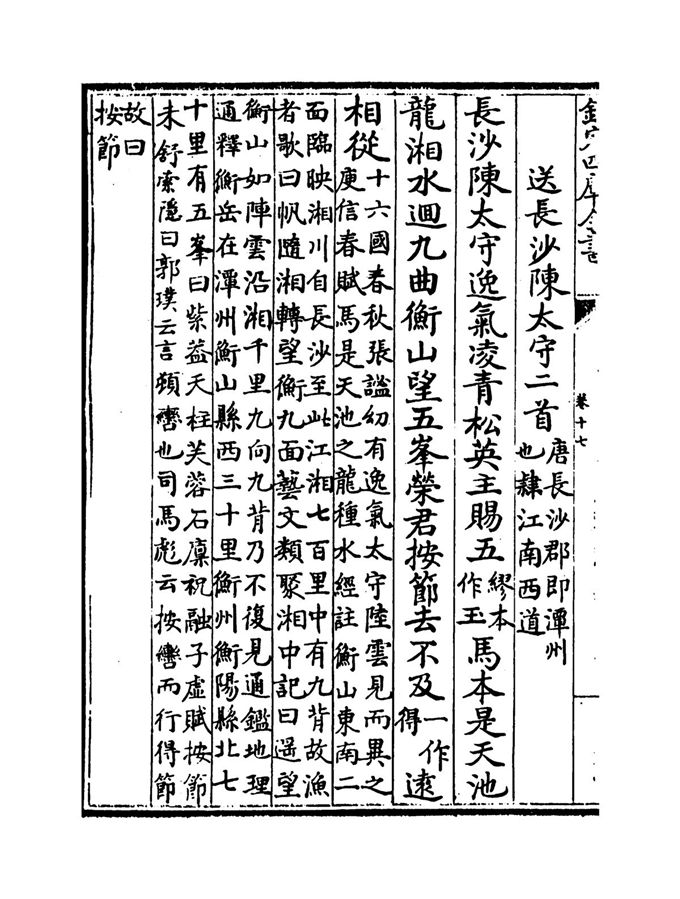 欽定四庫全書
卷十七
送長沙陳太守二首唐長沙郡即潭州
也隸江南西道
長沙陳太守逸氣凌青松英主賜五繆本
作玉馬本是天池
龍湘水迴九曲衡山望五峯榮君按節去不及一作
得遠
相從十六國春秋張謐幼有逸氣太守陸雲見而異之
庾信春賦馬是天池之龍種水經註衡山東南二
面臨映湘川自長沙至此江湘七百里中有九背故漁
者歌曰帆隨湘轉望衡九面藝文類聚湘中記曰遥望
衡山如陣雲沿湘千里九向九背乃不復見通鑑地理
通釋衡岳在潭州衡山縣西三十里衡州衡陽縣北七
十里有五峯曰紫盖天柱芙蓉石廩祝融子虛賦按節
未舒索隱曰郭璞云言頻轡也司馬彪云按轡而行得節
故曰
按節